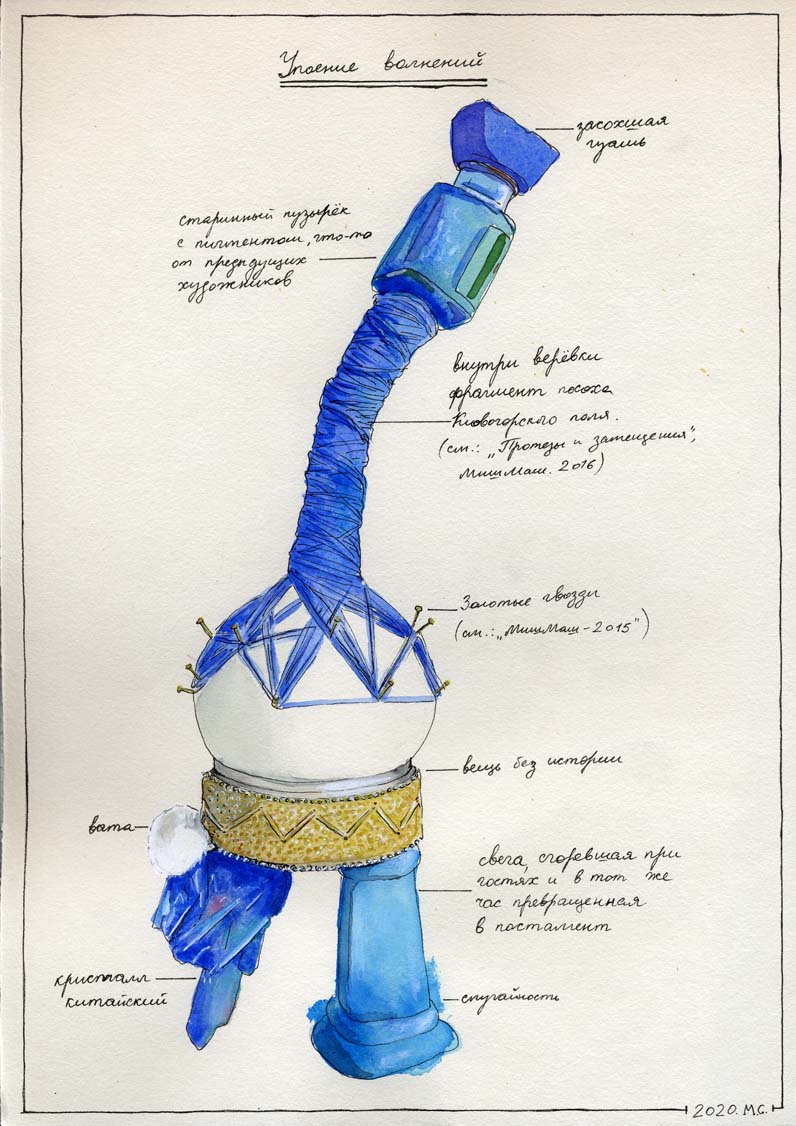 Упоение волнений
засохшая
гуашь
старинный пузырёк
с пигментом, что-то
от предыдущих
художников
внутри верёвки
фрагмент посоха
Киовогорского поля.
(см.: „Протезы и замещения",
МишМаш. 2016)
Золотые гвозди
(см.: „МишМаш-2015")
вещь без истории
вата
свеча, сгоревшая при
гостях и в тот же
час превращенная
в постамент
кристалл
китайский
случайность
2020. М.С.